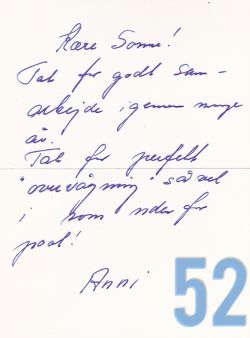 Kære Sonni!
Tak for godt sam-
arbejde igennem mange
år.
Tak for perfekt
"overvågning" såvel
i som uden for
pool!
Anni
52